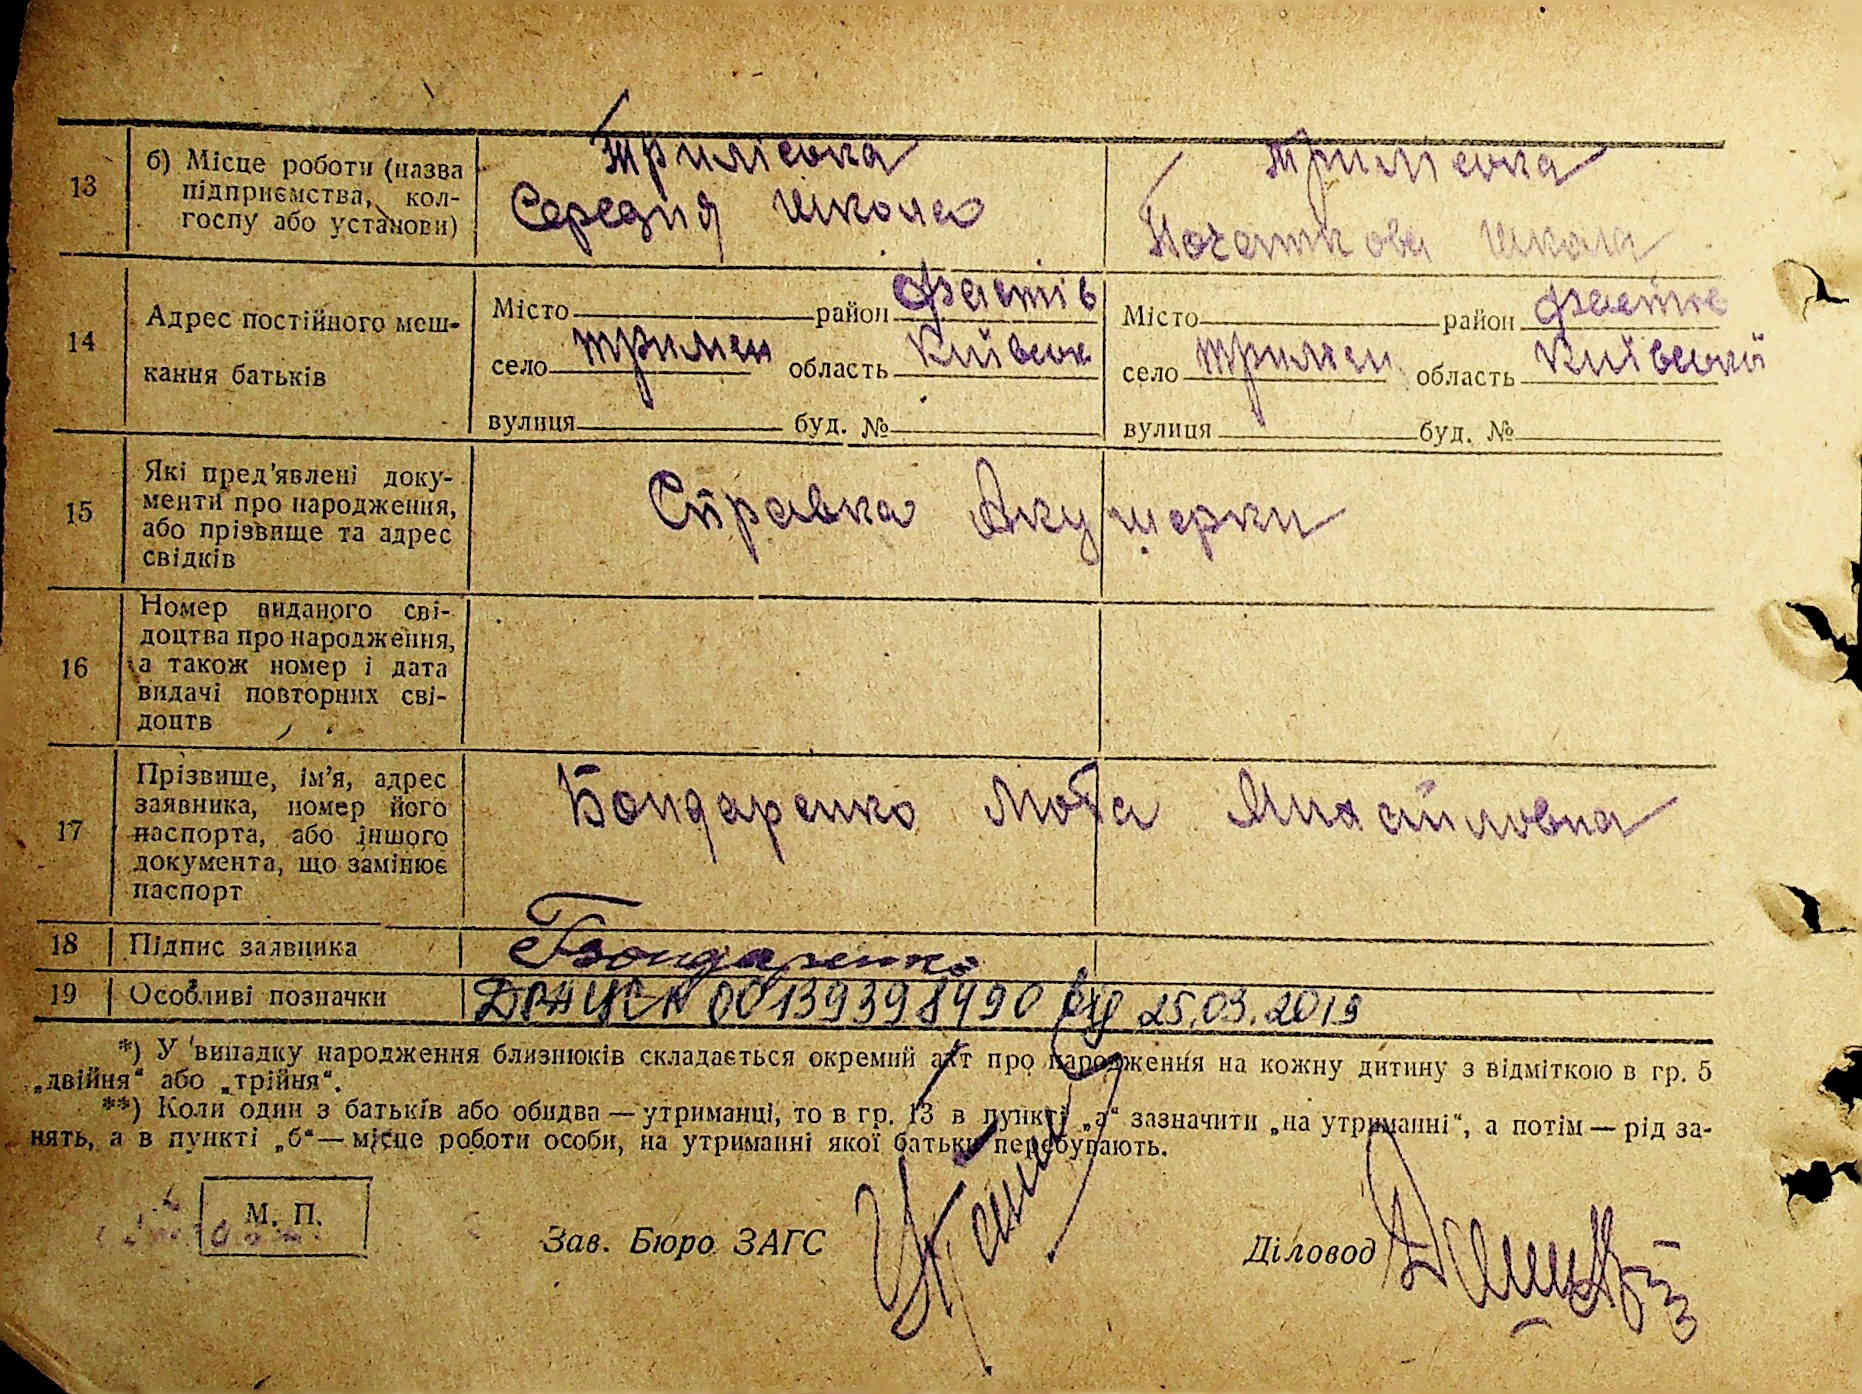 13
б) Місце роботи (назва
підприємства, кол-
госпу або установи)
Трилісска
Середня школа
Трилісска
Початкова школа
14
Адрес постійного меш-
кання батьків
Місто район Фастів
село Трилеси область Київськ
вулиця буд. №
Місто район Фастів
село Трилеси область Київської
вулиця буд. №
15
Які пред'явлені доку-
менти про народження,
або прізвище та адрес
свідків
Справка Акушерки
16
Номер виданого сві-
доцтва про народження,
а також номер і дата
видачі повторних сві-
доцтв
17
Прізвище, ім'я, адрес
заявника, номер його
паспорта, або іншого
документа, що замінює
паспорт
Бондаренко Мотя Михайловна
18 Підпис заявника Бондаренко
19 Особливі позначки ДРАЦСА 00139398490 від 25.03.2019
*) У випадку народження близнюків складається окремий акт про народження на кожну дитину з відміткою в гр. 5
„двійня“ або „трійня“.
**) Коли один з батьків або обидва — утриманці, то в гр. 13 в пункті „а“ зазначити „на утриманні“, а потім — рід за-
нять, а в пункті „б“ — місце роботи особи, на утриманні якої батьки перебувають.
М. П.
Зав. Бюро ЗАГС
Діловод